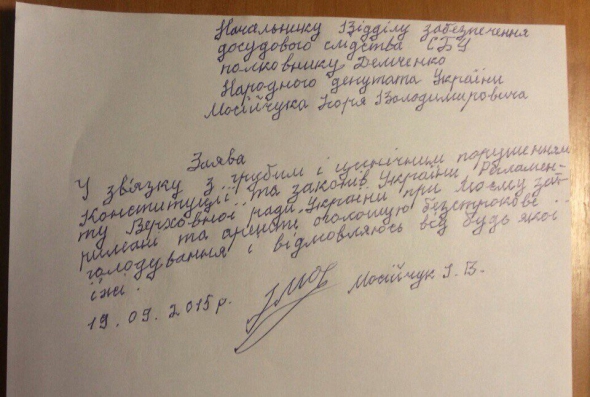 Начальнику Відділу забезпечення
досудового слідства СБУ
полковнику Демченко
Народного депутата України
Мосійчука Ігоря Володимировича
Заява
У зв'язку з грубим і цинічним порушенням
Конституції та законів України, Регламен-
ту Верховної ради України при моєму зат-
римані та арешті оголошую безстрокове
голодування і відмовляюсь від будь якої
їжі.
19.09.2015р. Мосійчук І.В.